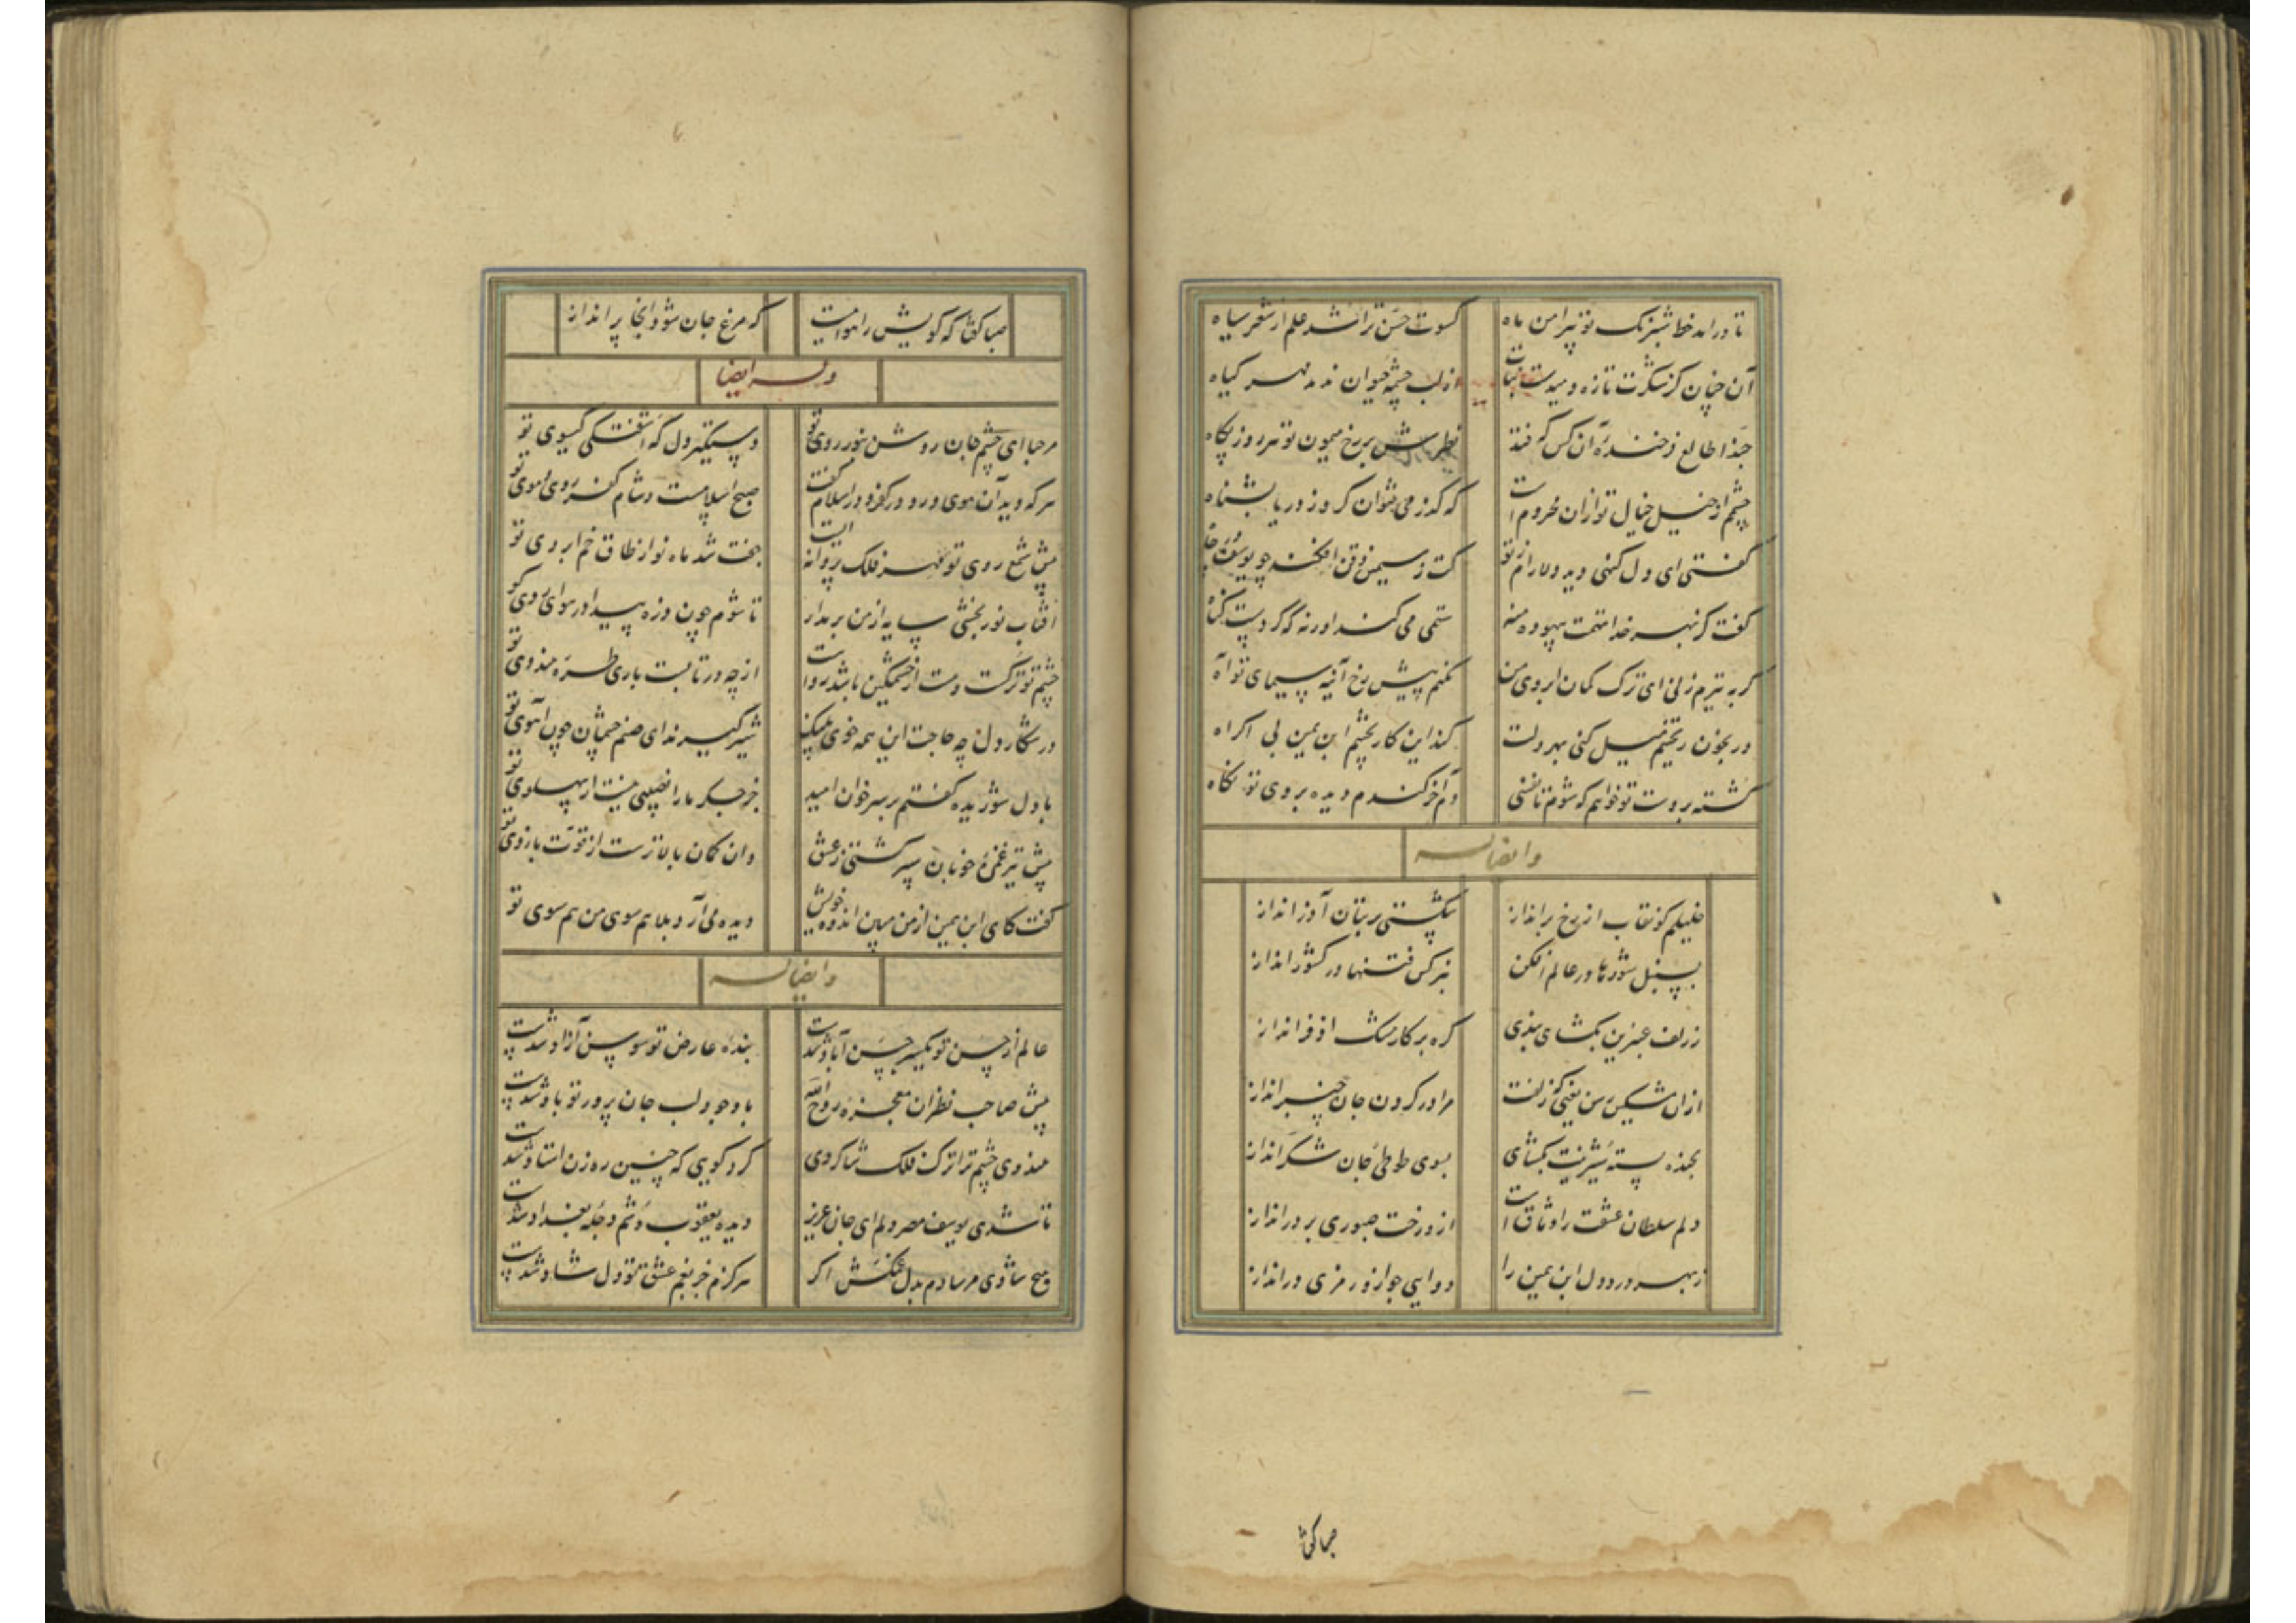 تا در امد خط شبرنگ تو پیرامن ماه کسوت حسن ترا شد علم از شعر سیاه
آن چنان کز شکرت تازه دمیدست نبات از لب چشمه حیوان ندمد مهر کیاه
حبذا طالع فرخنده آن کس که فتد نظرش بر رخ میمون تو هر روز پکاه
چشمم از خیل خیال تو ازان محروم است که گذر می نتوان کرد ز دریا بشناه
گفتی ای دل کنهی دید دلارام ز تو کت در سیمین ذقن افکند چو یوسف در چاه
گفت کز بهر خدا تهمت بیهوده منه ستمی می کند او ر نه که کردست کناه
گر به تیرم زنی ای ترک کمان ابروی من نکنم پیش رخ آینه سیمای تو آه
ور بخون ریختنم میل کنی بهر دلت کند این کار بچشم ابن یمین بی اکراه
کشته بر دست تو خواهم که شوم تا نفسی دم آخر کندم دیده بر وی تو نکاه
و ایضا له
خلیلم کو نقاب از رخ بر انداز شکستی بر بتان آزر انداز
بسنبل شورها در عالم افکن بنرکس فتنها در کشور انداز
ز زلف عنبرین بکشای بندی گره بر کار مشک اذفر انداز
ازان مشکین رسن یعنی که زلفت مرا در گردن جان چنبر انداز
بخنده پسته شیرینت بکشای بسوی طوطی جان شکر انداز
دلم سلطان عشقت را وثاق است از و رخت صبوری بر در انداز
ز بهر درد دل ابن یمین را دوایی جو از و رمزی در انداز
صبا گفتا
صبا گفتا که کویش را هوا نیست که مرغ جان شو و انجا پر انداز
وله ایضا
مرحبا ای چشم جان روشن بنور روی تو دستگیر دل که آشفتگی گیسوی تو
هر که دید آن موی و رو در کفر و در اسلام گفت صبح اسلامست و شام کفر روی و موی تو
پیش شمع روی تو مهر فلک پروانه ایست جفت شد ماه نو از طاق خم ابروی تو
آفتاب نور بخشی سایه از من بر مدار تا شوم چون ذره پیدا در هوای روی تو
چشم تو ترکست و مست ار خشمگین باشد رواست از چه در تابست باری طره هندوی تو
در شکار دل چه حاجت این همه خوی پلنگ شیر گیرند ای صنم چشمان چون آهوی تو
با دل شوریده گفتم بر سر خوان امید جز جگر ما را نصیبی نیست از پهلوی تو
پیش تیر غمزه خوبان سپر گشتی ز عشق وان کمان بالاترست از قوت بازوی تو
گفت کای ابن یمین از من مبین اندوه خویش دیده می آرد بلا هم سوی من هم سوی تو
و ایضا له
عالم از حسن تو یکسر حسن آباد شدست بنده عارض تو سوسن آزاد شدست
پیش صاحب نظران معجزه روح الله با وجود لب جان پرور تو باد شدست
هندوی چشم ترا ترک فلک شاگردی کرد گویی که چنین ره زن استاد شدست
تا شدی یوسف مصر دلم ای جان عزیز دیده یعقوب دشم دجله بغداد شدست
هیچ شادی مرسادم بدل غمکش اگر هرگزم جز بغم عشق تو دل شاد شدست